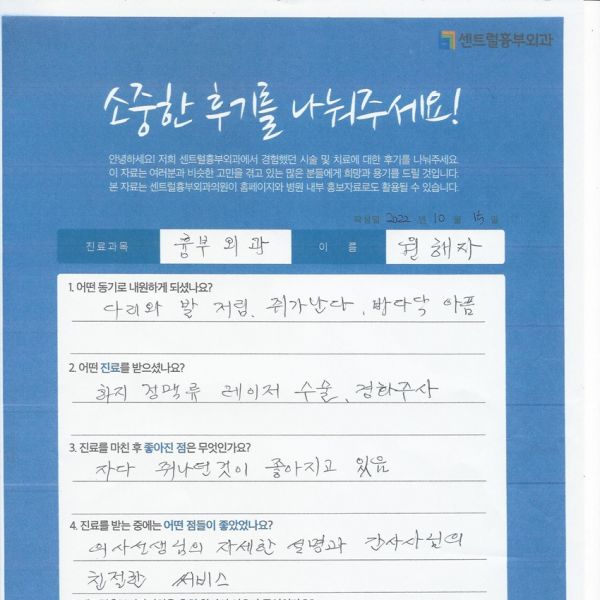 센트럴흉부외과
소중한 후기를 나눠주세요!
안녕하세요! 저희 센트럴흉부외과에서 경험했던 시술 및 치료에 대한 후기를 나눠주세요.
이 자료는 여러분과 비슷한 고민을 겪고 있는 많은 분들에게 희망과 용기를 드릴 것입니다.
본 자료는 센트럴흉부외과의원이 홈페이지와 병원 내부 홍보자료로도 활용될 수 있습니다.
작성일 2022 년 10 월 15 일
진료과목 흉부외과 이 름 원해자
1. 어떤 동기로 내원하게 되셨나요?
다리와 발 저림, 쥐가난다, 발다닥 아픔
2. 어떤 진료를 받으셨나요?
하지 정맥류 레이저 수술, 경화주사
3. 진료를 마친 후 좋아진 점은 무엇인가요?
자다 쥐나던것이 좋아지고 있음
4. 진료를 받는 중에는 어떤 점들이 좋았었나요?
의사선생님의 자세한 설명과 간사사님의
친절한 써비스